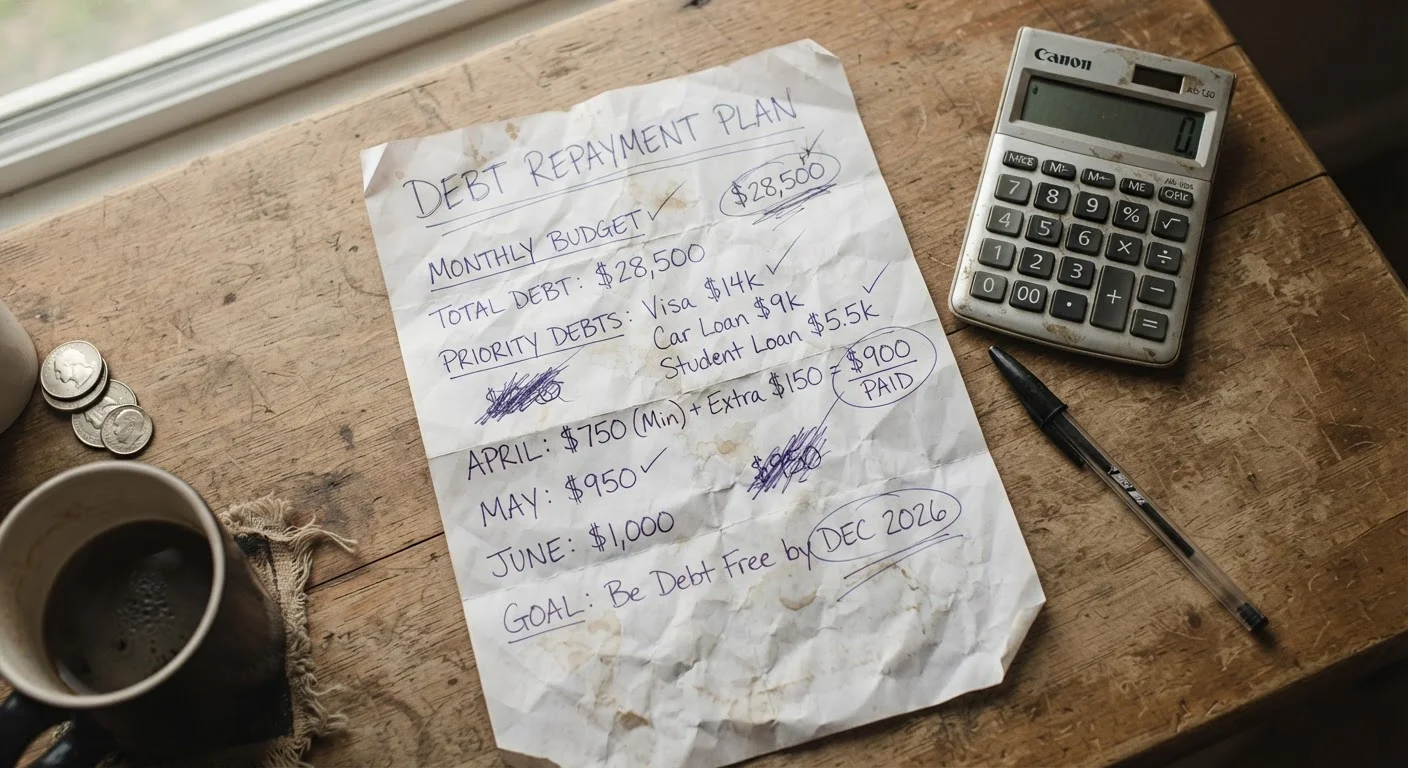 DEBT REPAYMENT PLAN
$28,500
MONTHLY BUDGET ✓
TOTAL DEBT: $28,500
PRIORITY DEBTS: Visa $14k ✓
Car Loan $9k
Student Loan $5.5k ✓
APRIL: $750 (Min) + Extra $150 = $900
PAID
MAY: $950 ✓
JUNE: $1,000
GOAL: Be Debt Free by DEC 2026
Canon
0.
7 8 9 % √
4 5 6 × ÷
1 2 3 + −
0 00 · =